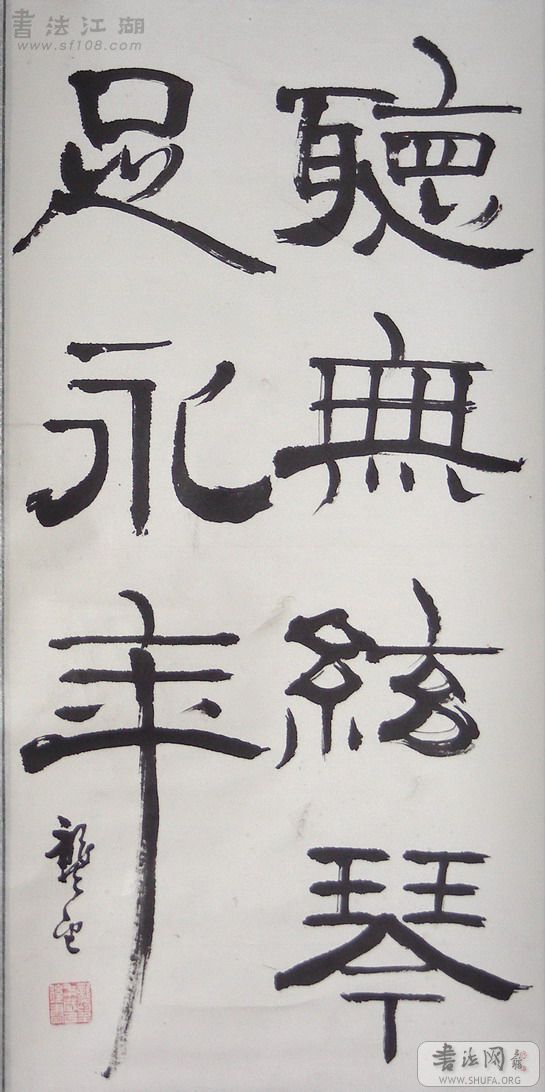 聽無絃琴
足永年
書法江湖
www.sf108.com
書法网
WWW.SHUFA.ORG